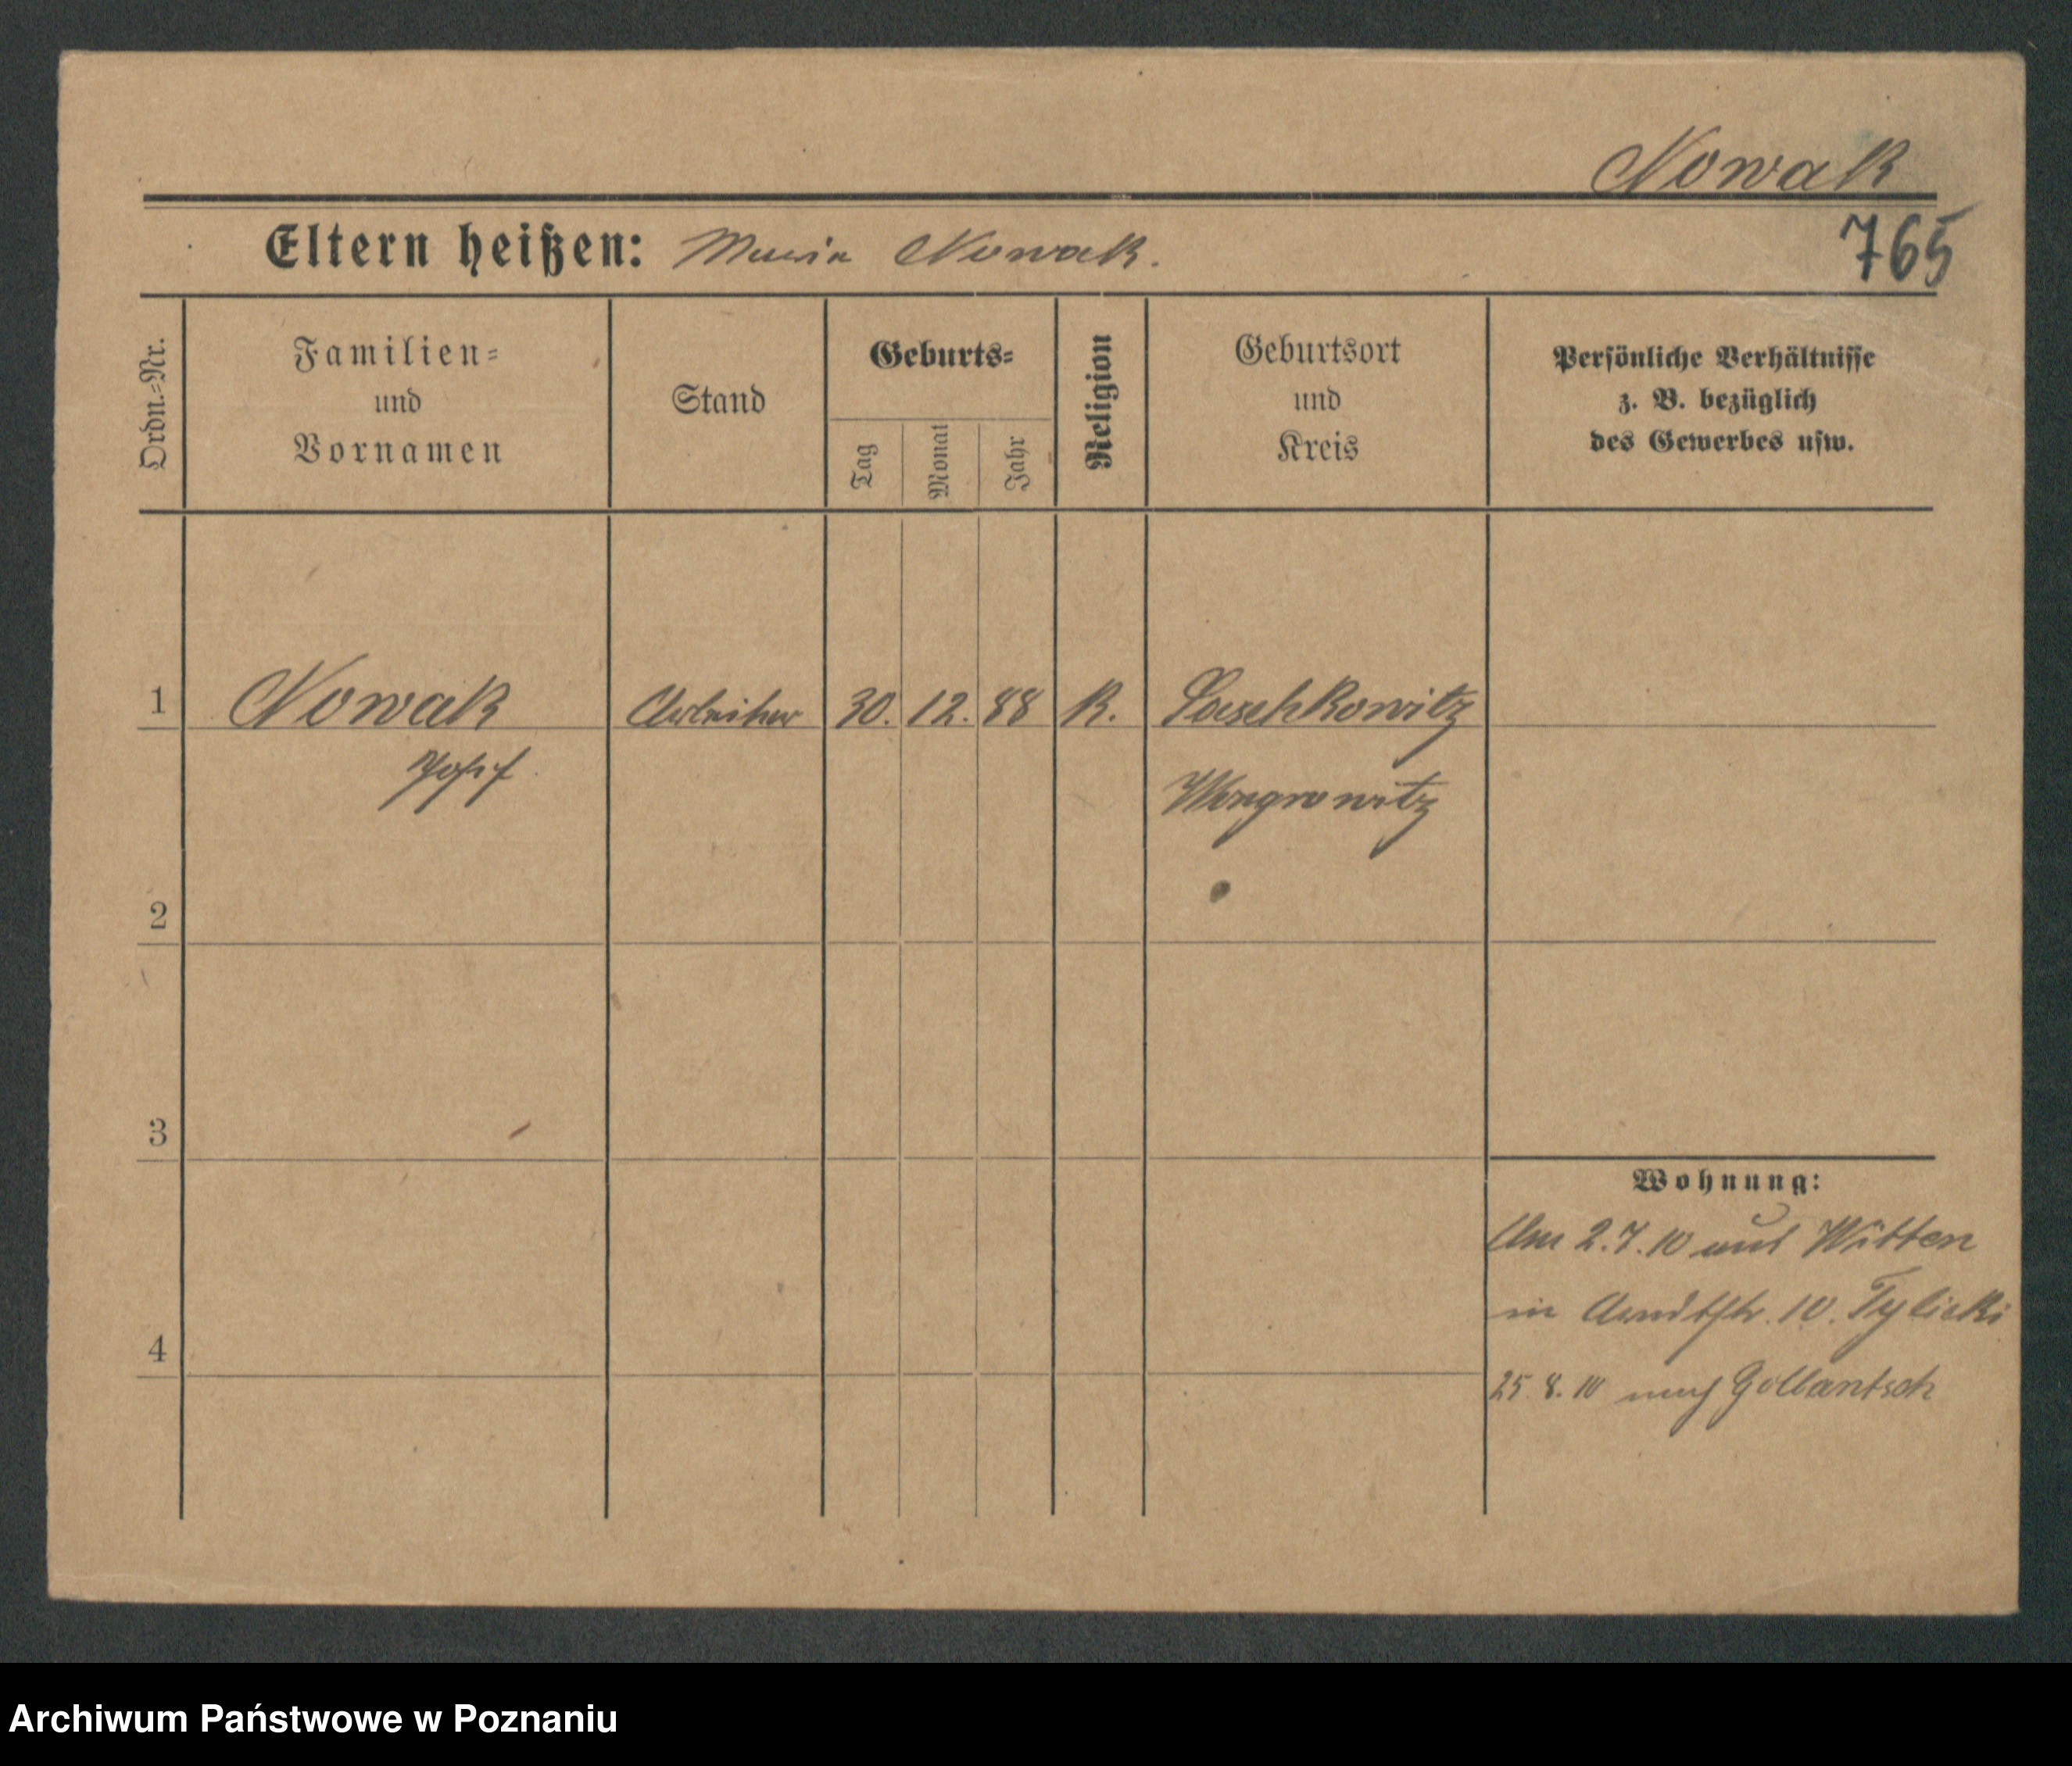 Nowak
Eltern heißen: Maria Nowak.
765
Ordn.=Nr.
Familien=
und
Vornamen
Stand
Geburts=
Tag
Monat
Jahr
Religion
Geburtsort
und
Kreis
Persönliche Verhältnisse
z. B. bezüglich
des Gewerbes usw.
1 Nowak Arbeiter 30. 12. 88 R. Laschkowitz
Josef
Wongrowitz
2
3
4
Wohnung:
Am 2.7.10 aus Witten
in Arndtstr. 10. Tylicki
25.8.10 nach Gollantsch
Archiwum Państwowe w Poznaniu